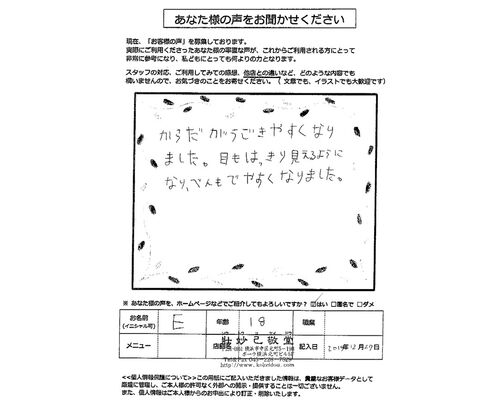 あなた様の声をお聞かせください
現在、「お客様の声」を募集しております。
実際にご利用くださったあなた様の率直な声が、これからご利用される方にとって
非常に参考になり、私どもにとっても何よりの力となります。
スタッフの対応、ご利用してみての感想、他店との違いなど、どのような内容でも
構いませんので、お気づきのことをお寄せください。（文章でも、イラストでも大歓迎です）
からだがうごきやすくなり
ました。目もはっきり見えるように
なり、べんもでやすくなりました。
※ あなた様の声を、ホームページなどでご紹介してもよろしいですか？ ☑はい □匿名で □ダメ
お名前 (イニシャル可) E 年齢 18 職業
メニュー 店名 壮妙己敬堂 記入日 2019年12月29日
横浜市中区元町5-198
Tel&Fax 045-228-7629
<<個人情報保護について>>この用紙にご記入いただきました情報は、貴重なお客様データとして
厳重に管理し、ご本人様の許可なく外部への開示・提供することは一切ございません。
また、個人情報はご本人様からのお申出により訂正・削除いたします。